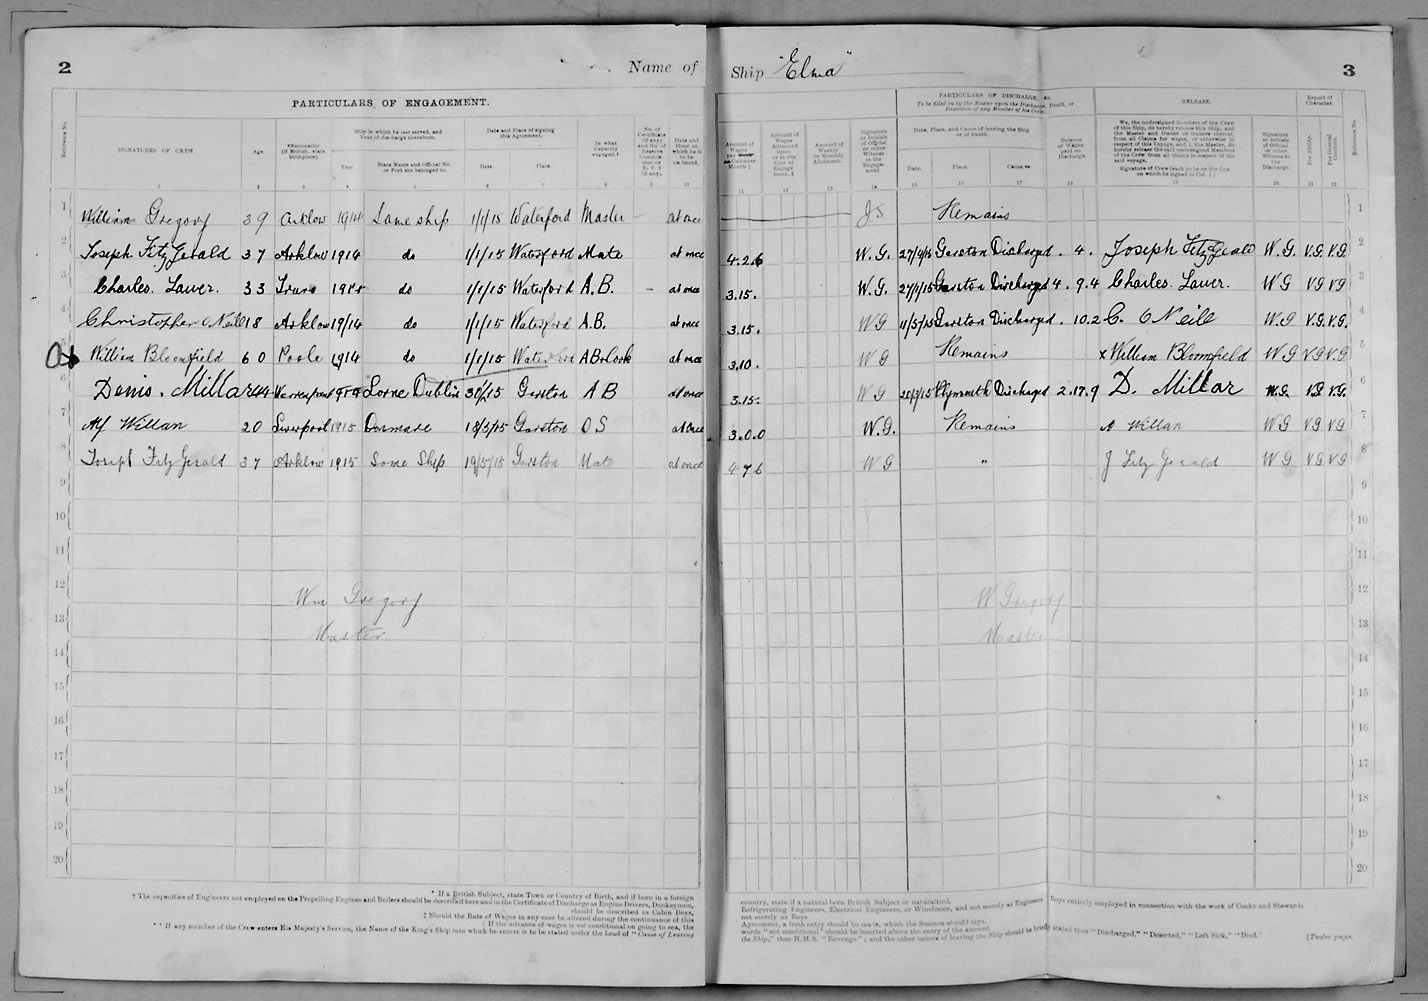 2
Name of
Ship "Elma"
3
PARTICULARS OF ENGAGEMENT.
PARTICULARS OF DISCHARGE, &c.
To be filled in by the Master upon the Discharge, Death, or Desertion of any Member of his Crew.
RELEASE.
Report of Character.
Reference No.
SIGNATURES OF CREW.
Age.
*Nationality (If British, state birthplace).
Ship in which he last served, and Year of discharge therefrom.
Year.
State Name and Official No. or Port she belonged to.
Date and Place of signing this Agreement.
Date.
Place.
In what Capacity engaged.†
No. of Certificate (if any) and No. of Reserve Commission or R (if any).
Date and Hour at which he is to be on board.
Amount of Wages per Calendar Month ‡
Amount of Wages Advanced upon or at the time of Engagement. ‡
Amount of Weekly or Monthly Allotment.
Signature or Initials of Official or other Witness to the Engagement
Date, Place, and Cause of leaving the Ship or of Death.
Date.
Place.
Cause.**
Balance of Wages paid on Discharge.
We, the undersigned Members of the Crew of this Ship, do hereby release this Ship, and the Master and Owner or Owners thereof, from all Claims for wages, or otherwise in respect of this Voyage, and I, the Master, do hereby release the said undersigned Members of the Crew from all claims in respect of the said voyage.
Signature of Crew (each to be on the line on which he signed in Col. 1.)
Signature or Initials of Official or other Witness to the Discharge.
For Ability.
For General Conduct.
Reference No.
1 2 3 4 5 6 7 8 9 10 11 12 13 14 15 16 17 18 19 20 21 22
1 William Gregory 39 Arklow 1914 Same ship 1/1/15 Waterford Master at once J S Remains 1
2 Joseph FitzGerald 37 Arklow 1914 do 1/1/15 Waterford Mate at once 4.2.6 W. G. Garston Discharged . 4 . Joseph FitzGerald W. G. V.G. V.G 2
3 Charles Lawer. 33 Truro do 1/1/15 Waterford A.B. at once 3.15. W. G. Garston Discharged 4 . 9.4 Charles Lawer. W G V G V G 3
4 Christopher O Neill 18 Arklow 1914 do 1/1/15 Waterford A.B. at once 3.15. W G 11/5/15 Garston Discharged . 10.2 C. O Neill W. G V.G. V.G. 4
5 William Bloomfield 60 Poole 1914 do 1/1/15 Waterford AB & Cook at once 3.10. W G Remains x William Bloomfield W G V G V. G 5
6 Denis. Millar Lorne Dublin Garston A B at once 3.15. W G Plymouth Discharged 2.17.9 D. Millar W. G. V.G V.G. 6
7 Af Willan 20 Liverpool 1915 Garston O S at once 3.0.0 W. G. Remains A Willan W G V G V G 7
8 Joseph FitzGerald 37 Arklow 1915 Same Ship 19/5/15 Garston Mate at once 4 7 6 W G " J FitzGerald W G V G V G 8
9 9
10 10
11 11
12 12
Wm Gregory W Gregory
13 13
Master Master
14 14
15 15
16 16
17 17
18 18
19 19
20 20
* If a British Subject, state Town or Country of Birth, and if born in a foreign country, state if a natural born British Subject or naturalised.
† The capacities of Engineers not employed on the Propelling Engines and Boilers should be described here and in the Certificate of Discharge as Engine Drivers, Donkeymen, Refrigerating Engineers, Electrical Engineers, or Winchmen, and not merely as Engineers. Boys entirely employed in connection with the work of Cooks and Stewards
should be described as Cabin Boys, not merely as Boys.
‡ Should the Rate of Wages in any case be altered during the continuance of this Agreement, a fresh entry should be made, which the Seaman should sign.
‡ If the advance of wages is not conditional on going to sea, the words "not conditional" should be inserted above the entry of the amount.
** If any member of the Crew enters His Majesty's Service, the Name of the King's Ship into which he enters is to be stated under the head of "Cause of Leaving the Ship," thus H.M.S. "Revenge"; and the other causes of leaving the Ship should be briefly stated thus "Discharged," "Deserted," "Left Sick," "Died."
[Twelve pages.